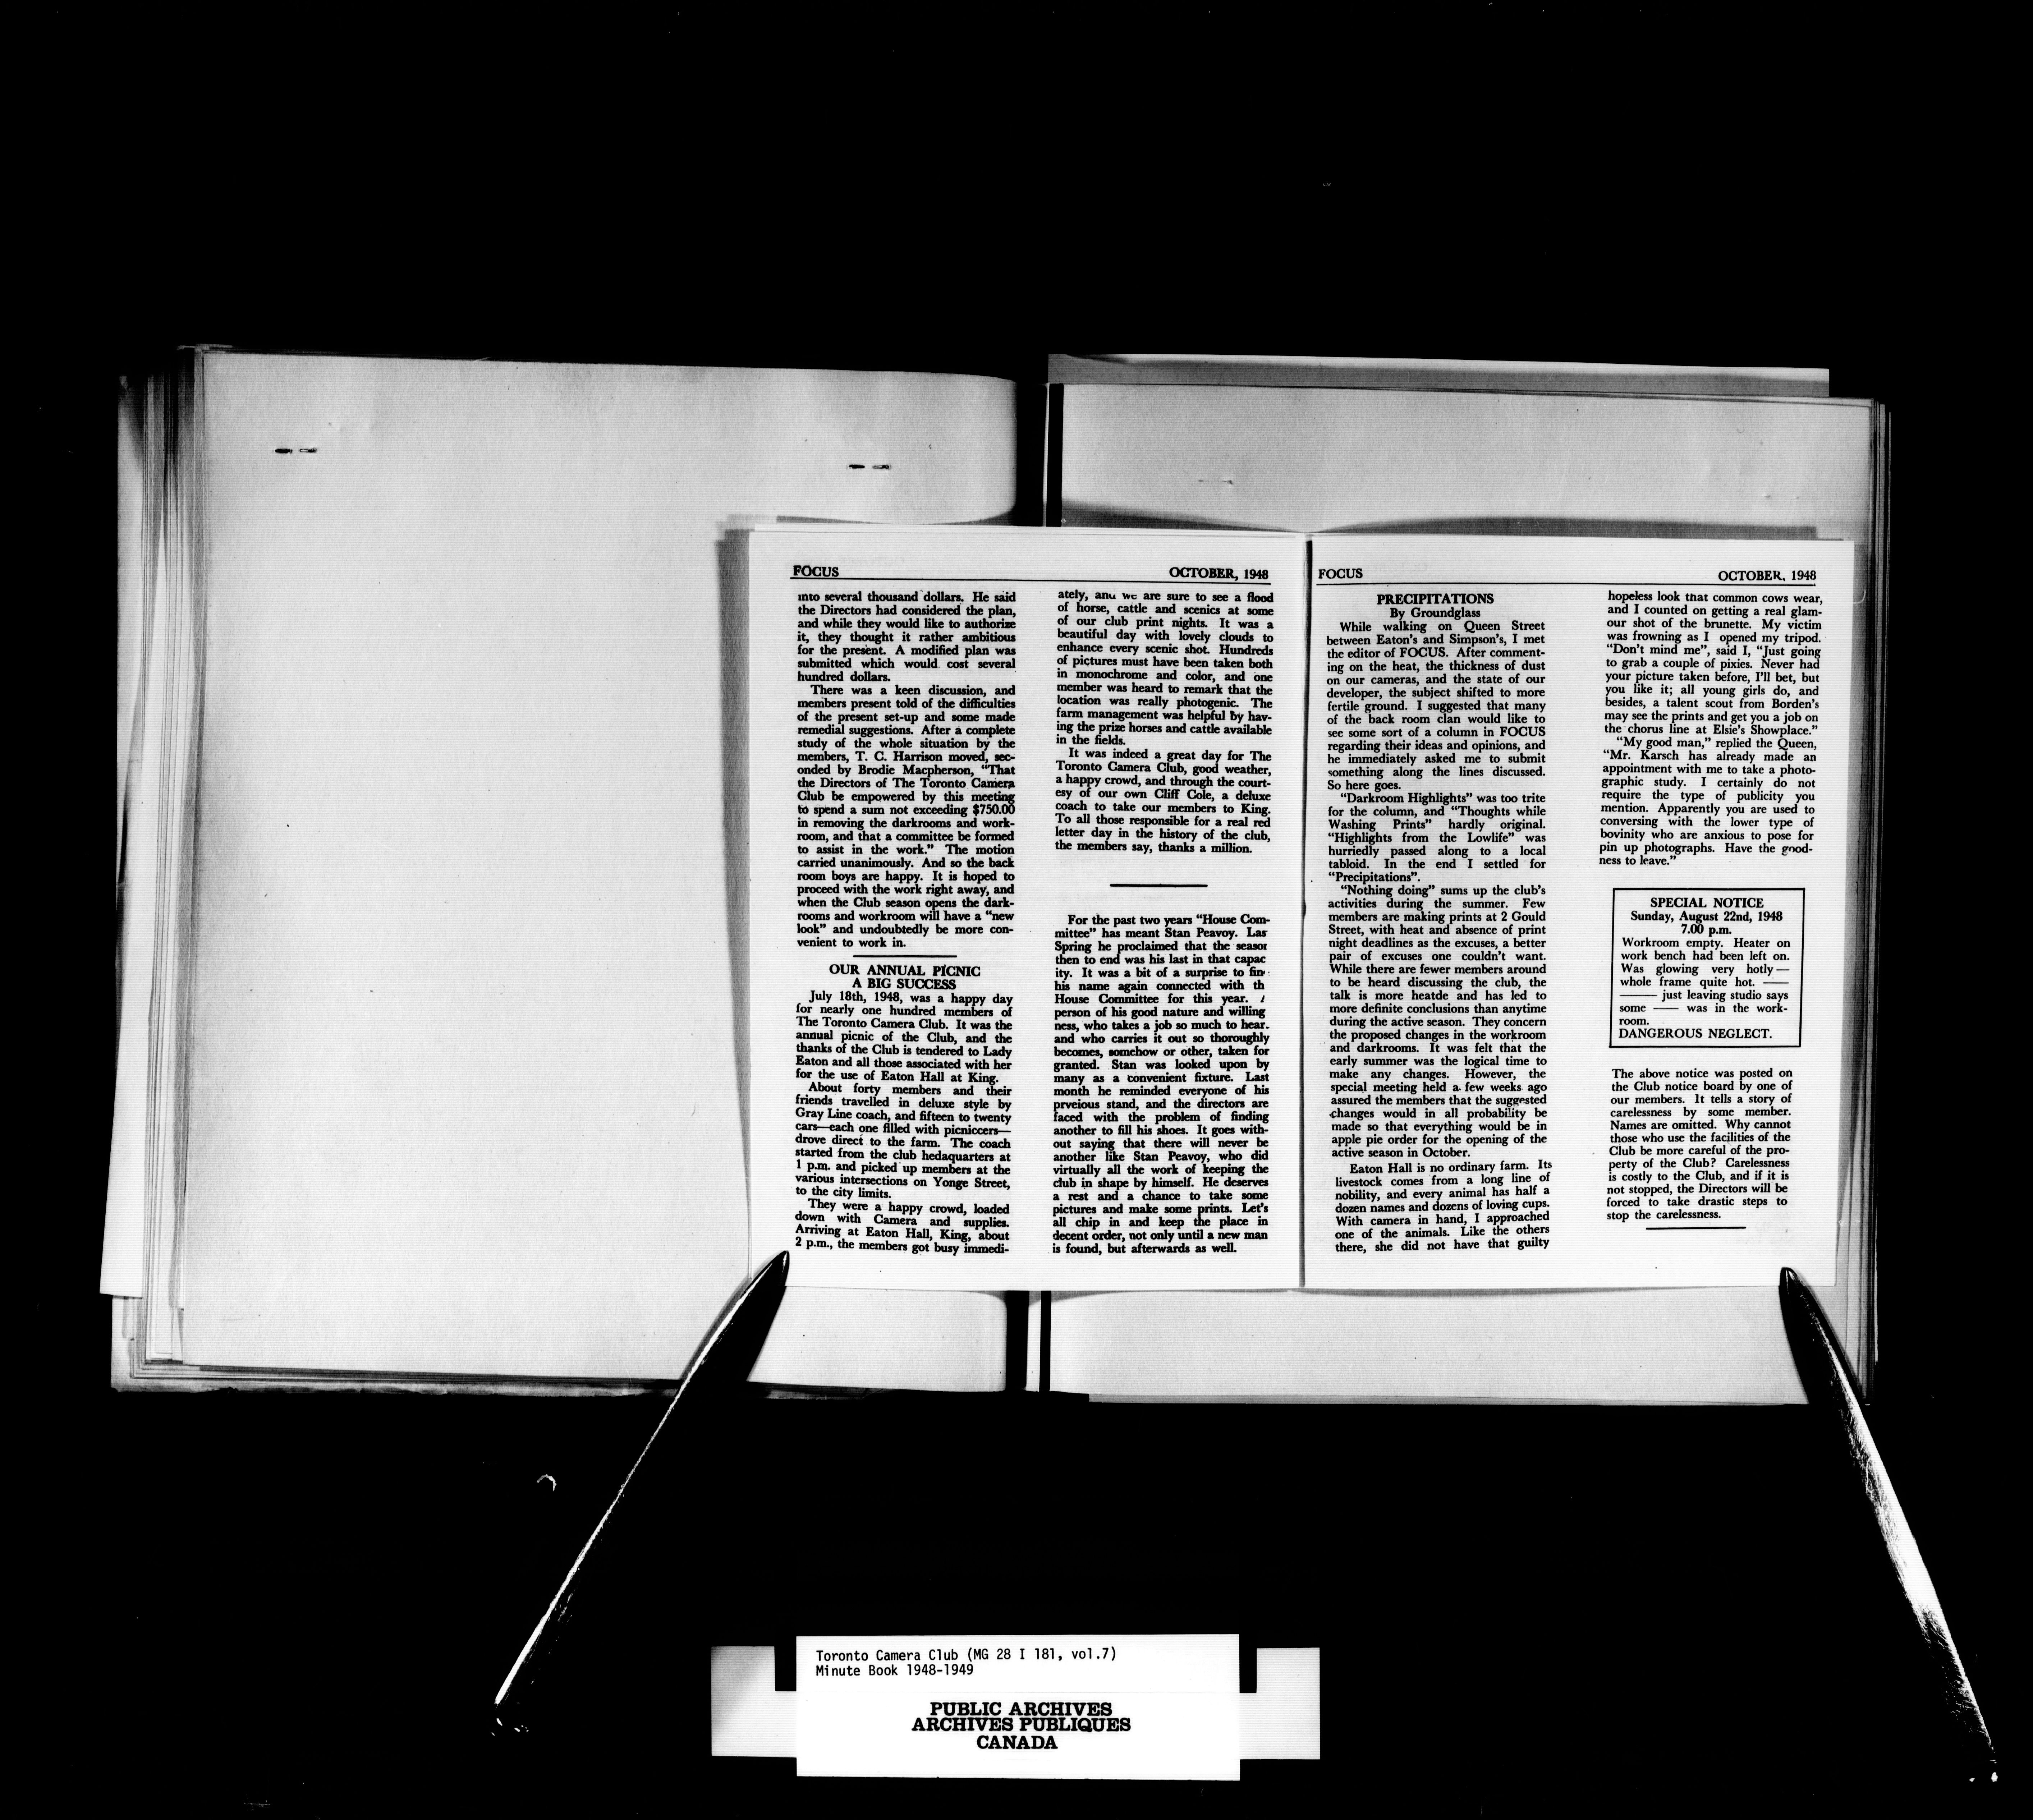 FOCUS OCTOBER, 1948
into several thousand dollars. He said
the Directors had considered the plan,
and while they would like to authorize
it, they thought it rather ambitious
for the present. A modified plan was
submitted which would cost several
hundred dollars.
There was a keen discussion, and
members present told of the difficulties
of the present set-up and some made
remedial suggestions. After a complete
study of the whole situation by the
members, T. C. Harrison moved, sec-
onded by Brodie Macpherson, "That
the Directors of The Toronto Camera
Club be empowered by this meeting
to spend a sum not exceeding $750.00
in removing the darkrooms and work-
room, and that a committee be formed
to assist in the work." The motion
carried unanimously. And so the back
room boys are happy. It is hoped to
proceed with the work right away, and
when the Club season opens the dark-
rooms and workroom will have a "new
look" and undoubtedly be more con-
venient to work in.
OUR ANNUAL PICNIC
A BIG SUCCESS
July 18th, 1948, was a happy day
for nearly one hundred members of
The Toronto Camera Club. It was the
annual picnic of the Club, and the
thanks of the Club is tendered to Lady
Eaton and all those associated with her
for the use of Eaton Hall at King.
About forty members and their
friends travelled in deluxe style by
Gray Line coach, and fifteen to twenty
cars—each one filled with picniccers—
drove direct to the farm. The coach
started from the club hedaquarters at
1 p.m. and picked up members at the
various intersections on Yonge Street,
to the city limits.
They were a happy crowd, loaded
down with Camera and supplies.
Arriving at Eaton Hall, King, about
2 p.m., the members got busy immedi-
ately, and we are sure to see a flood
of horse, cattle and scenics at some
of our club print nights. It was a
beautiful day with lovely clouds to
enhance every scenic shot. Hundreds
of pictures must have been taken both
in monochrome and color, and one
member was heard to remark that the
location was really photogenic. The
farm management was helpful by hav-
ing the prize horses and cattle available
in the fields.
It was indeed a great day for The
Toronto Camera Club, good weather,
a happy crowd, and through the court-
esy of our own Cliff Cole, a deluxe
coach to take our members to King.
To all those responsible for a real red
letter day in the history of the club,
the members say, thanks a million.
For the past two years "House Com-
mittee" has meant Stan Peavoy. Las
Spring he proclaimed that the season
then to end was his last in that capac
ity. It was a bit of a surprise to fin
his name again connected with th
House Committee for this year.
person of his good nature and willing
ness, who takes a job so much to hear.
and who carries it out so thoroughly
becomes, somehow or other, taken for
granted. Stan was looked upon by
many as a convenient fixture. Last
month he reminded everyone of his
prveious stand, and the directors are
faced with the problem of finding
another to fill his shoes. It goes with-
out saying that there will never be
another like Stan Peavoy, who did
virtually all the work of keeping the
club in shape by himself. He deserves
a rest and a chance to take some
pictures and make some prints. Let's
all chip in and keep the place in
decent order, not only until a new man
is found, but afterwards as well.
FOCUS OCTOBER, 1948
PRECIPITATIONS
By Groundglass
While walking on Queen Street
between Eaton's and Simpson's, I met
the editor of FOCUS. After comment-
ing on the heat, the thickness of dust
on our cameras, and the state of our
developer, the subject shifted to more
fertile ground. I suggested that many
of the back room clan would like to
see some sort of a column in FOCUS
regarding their ideas and opinions, and
he immediately asked me to submit
something along the lines discussed.
So here goes.
"Darkroom Highlights" was too trite
for the column, and "Thoughts while
Washing Prints" hardly original.
"Highlights from the Lowlife" was
hurriedly passed along to a local
tabloid. In the end I settled for
"Precipitations".
"Nothing doing" sums up the club's
activities during the summer. Few
members are making prints at 2 Gould
Street, with heat and absence of print
night deadlines as the excuses, a better
pair of excuses one couldn't want.
While there are fewer members around
to be heard discussing the club, the
talk is more heatde and has led to
more definite conclusions than anytime
during the active season. They concern
the proposed changes in the workroom
and darkrooms. It was felt that the
early summer was the logical time to
make any changes. However, the
special meeting held a few weeks ago
assured the members that the suggested
changes would in all probability be
made so that everything would be in
apple pie order for the opening of the
active season in October.
Eaton Hall is no ordinary farm. Its
livestock comes from a long line of
nobility, and every animal has half a
dozen names and dozens of loving cups.
With camera in hand, I approached
one of the animals. Like the others
there, she did not have that guilty
hopeless look that common cows wear,
and I counted on getting a real glam-
our shot of the brunette. My victim
was frowning as I opened my tripod.
"Don't mind me", said I, "Just going
to grab a couple of pixies. Never had
your picture taken before, I'll bet, but
you like it; all young girls do, and
besides, a talent scout from Borden's
may see the prints and get you a job on
the chorus line at Elsie's Showplace."
"My good man," replied the Queen,
"Mr. Karsch has already made an
appointment with me to take a photo-
graphic study. I certainly do not
require the type of publicity you
mention. Apparently you are used to
conversing with the lower type of
bovinity who are anxious to pose for
pin up photographs. Have the good-
ness to leave."
SPECIAL NOTICE
Sunday, August 22nd, 1948
7.00 p.m.
Workroom empty. Heater on
work bench had been left on.
Was glowing very hotly—
whole frame quite hot. ——
—— just leaving studio says
some —— was in the work-
room.
DANGEROUS NEGLECT.
The above notice was posted on
the Club notice board by one of
our members. It tells a story of
carelessness by some member.
Names are omitted. Why cannot
those who use the facilities of the
Club be more careful of the pro-
perty of the Club? Carelessness
is costly to the Club, and if it is
not stopped, the Directors will be
forced to take drastic steps to
stop the carelessness.
Toronto Camera Club (MG 28 I 181, vol.7)
Minute Book 1948-1949
PUBLIC ARCHIVES
ARCHIVES PUBLIQUES
CANADA